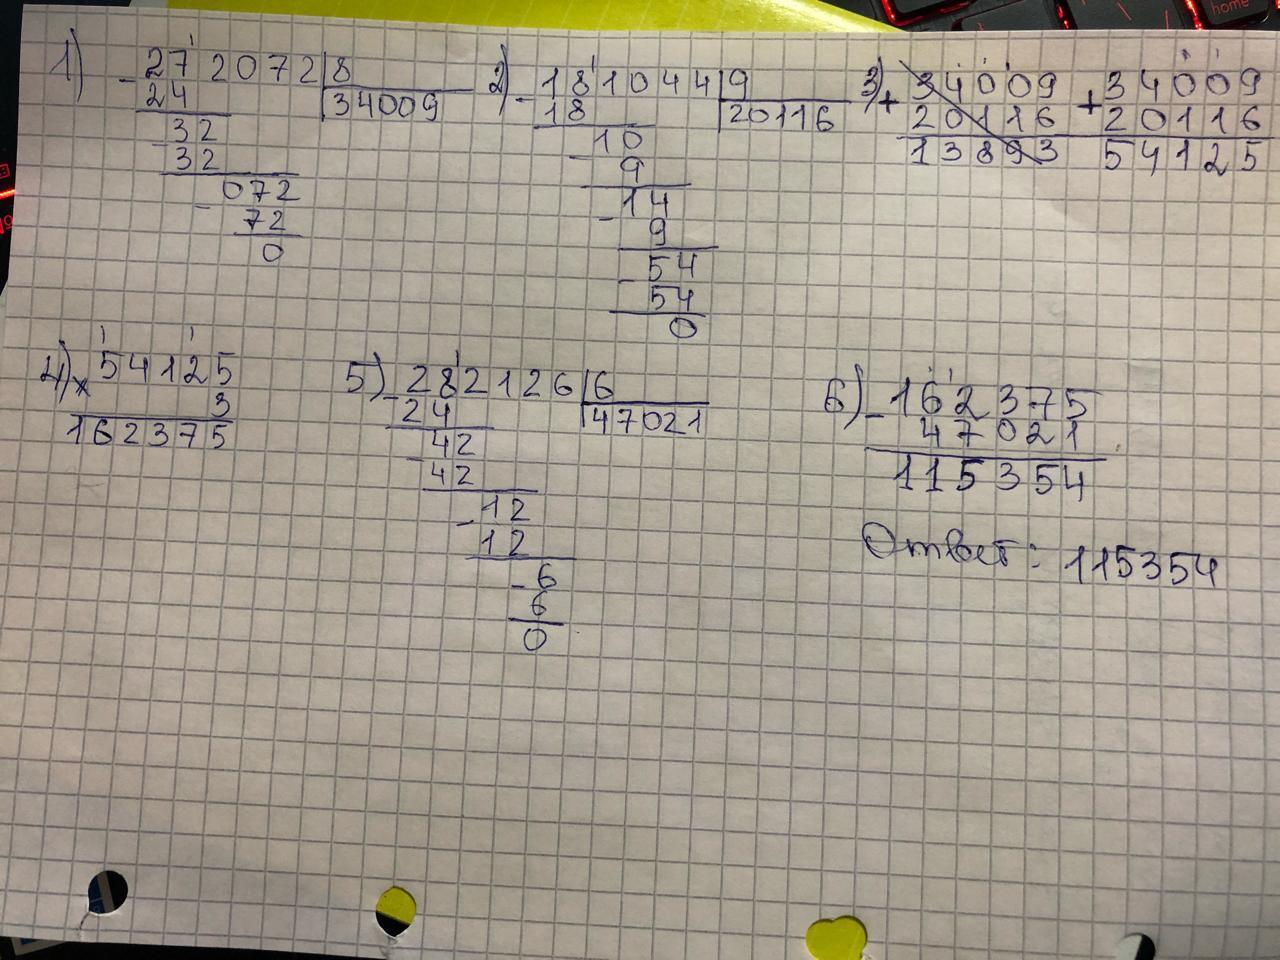 1) - 272072 | 8
24 | 34009
- 32
32
- 072
72
0
2) - 181044 | 9
18 | 20116
- 10
9
- 14
9
- 54
54
0
3) + 34009
20116
13893
+ 34009
20116
54125
4) × 54125
3
162375
5) - 282126 | 6
24 | 47021
- 42
42
- 12
12
- 6
6
0
6) - 162375
47021
115354
Ответ: 115354
home